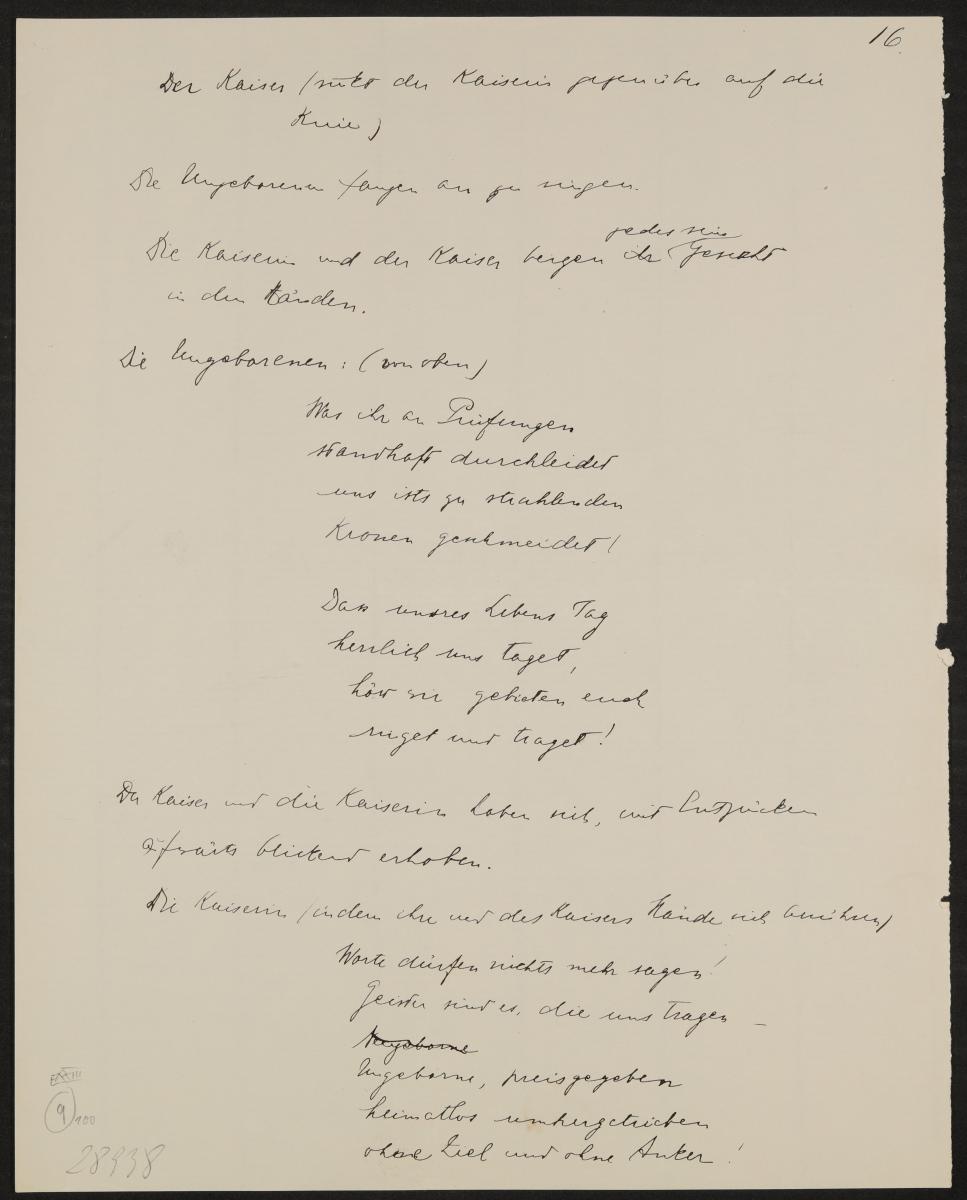 16.
Der Kaiser (sinkt der Kaiserin gegenüber auf die
Knie)
Die Ungeborenen fangen an zu singen.
jedes sein
Die Kaiserin und der Kaiser bergen ihr Gesicht
in den Händen.
Die Ungeborenen: (von oben)
Was ihr an Prüfungen
standhaft durchleidet
uns ists zu strahlenden
Kronen geschmeidet!
Dass unsres Lebens Tag
herrlich uns taget,
hört wir gebieten euch
ringet und traget!
Der Kaiser und die Kaiserin haben sich, mit Entzücken
aufwärts blickend erhoben.
Die Kaiserin (indem ihre und des Kaisers Hände sich berühren)
Worte dürfen nichts mehr sagen!
Geister sind es, die uns tragen –
Ungeborne, preisgegeben
heimatlos umhergetrieben
ohne Ziel und ohne Anker!
9
100
28938